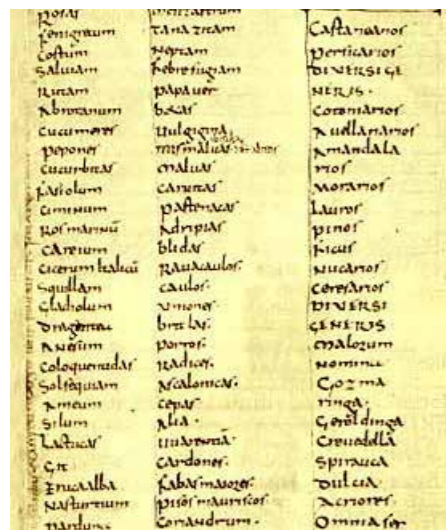 Rosas
fenigrecum
Costum
Salviam
Rutam
Abrotanum
Cucumeres
pepones
Cucurbitas
Fasiolum
Ciminum
Ros marinū
Careium
Cicerum italicū
Squillam
Gladiolum
Dragantea
Anesum
Coloquentidas
Solsequiam
Ameum
Silum
Lactucas
Git
Eruca alba
Nasturtium
Parduna
mentastrum
Tanazitam
Neptam
febrefugiam
papaver
betas
vulgigina
mismalvas
malvas
Carvitas
pastenacas
Adripias
blidas
Ravacaulos.
Caulos.
Uniones
britlas.
porros.
Radices.
Ascalonicas.
Cepas.
Alia.
Uuarentiā
Cardones.
Fabas maiores.
pisos mauriscos
Coriandrum.
Castanearios
persicarios
DIVERSI GE
NERIS.
Cotoniarios
Avellanarios
Amandala
rios
Morarios
Lauros
pinos
Ficus
Nucarios
Ceresarios
DIVERSI
GENERIS
Malorum
Nomina
Gozma
ringa.
Geroldinga
Crevedella
Spirauca
Dulcia
Acriores.
Omnia ser